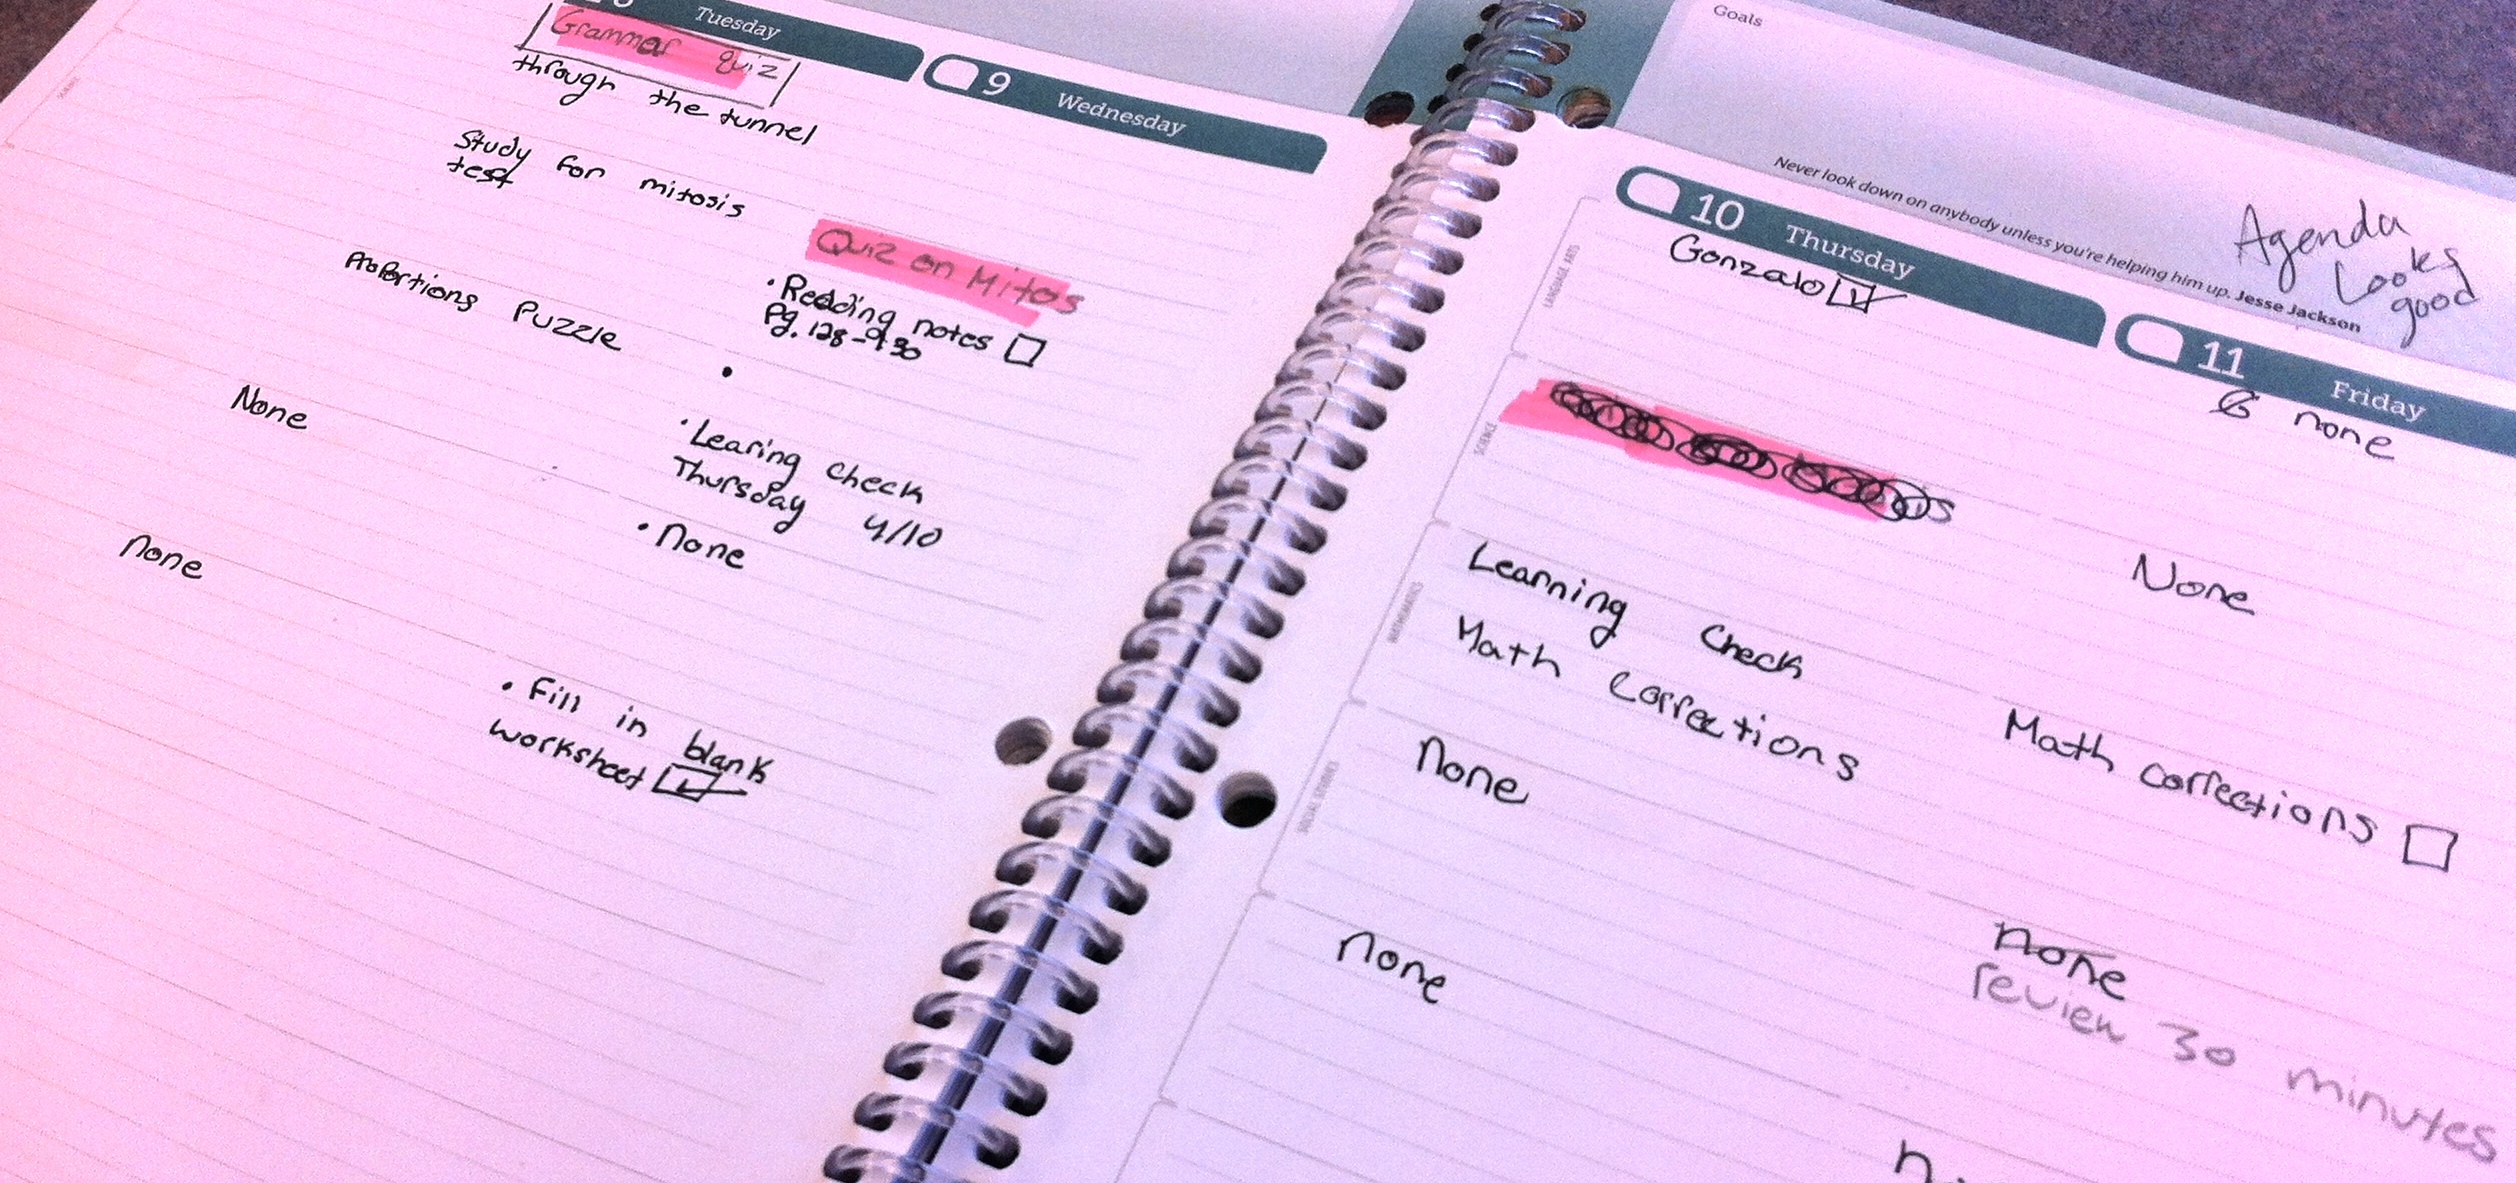 Tuesday
Grammar quiz
through the tunnel
Study for mitosis
test
Proportions Puzzle
None
none
9 Wednesday
Quiz on Mitos
• Reading notes
Pg. 128-930
• Learing check
Thursday 4/10
• none
• Fill in blank
worksheet
Goals
Never look down on anybody unless you're helping him up. Jesse Jackson
Agenda
Looks
good
10 Thursday
LANGUAGE ARTS
Gonzalo
SCIENCE
MATHEMATICS
Learning check
Math corrections
SOCIAL STUDIES
none
none
11 Friday
none
None
Math corrections
none
review 30 minutes